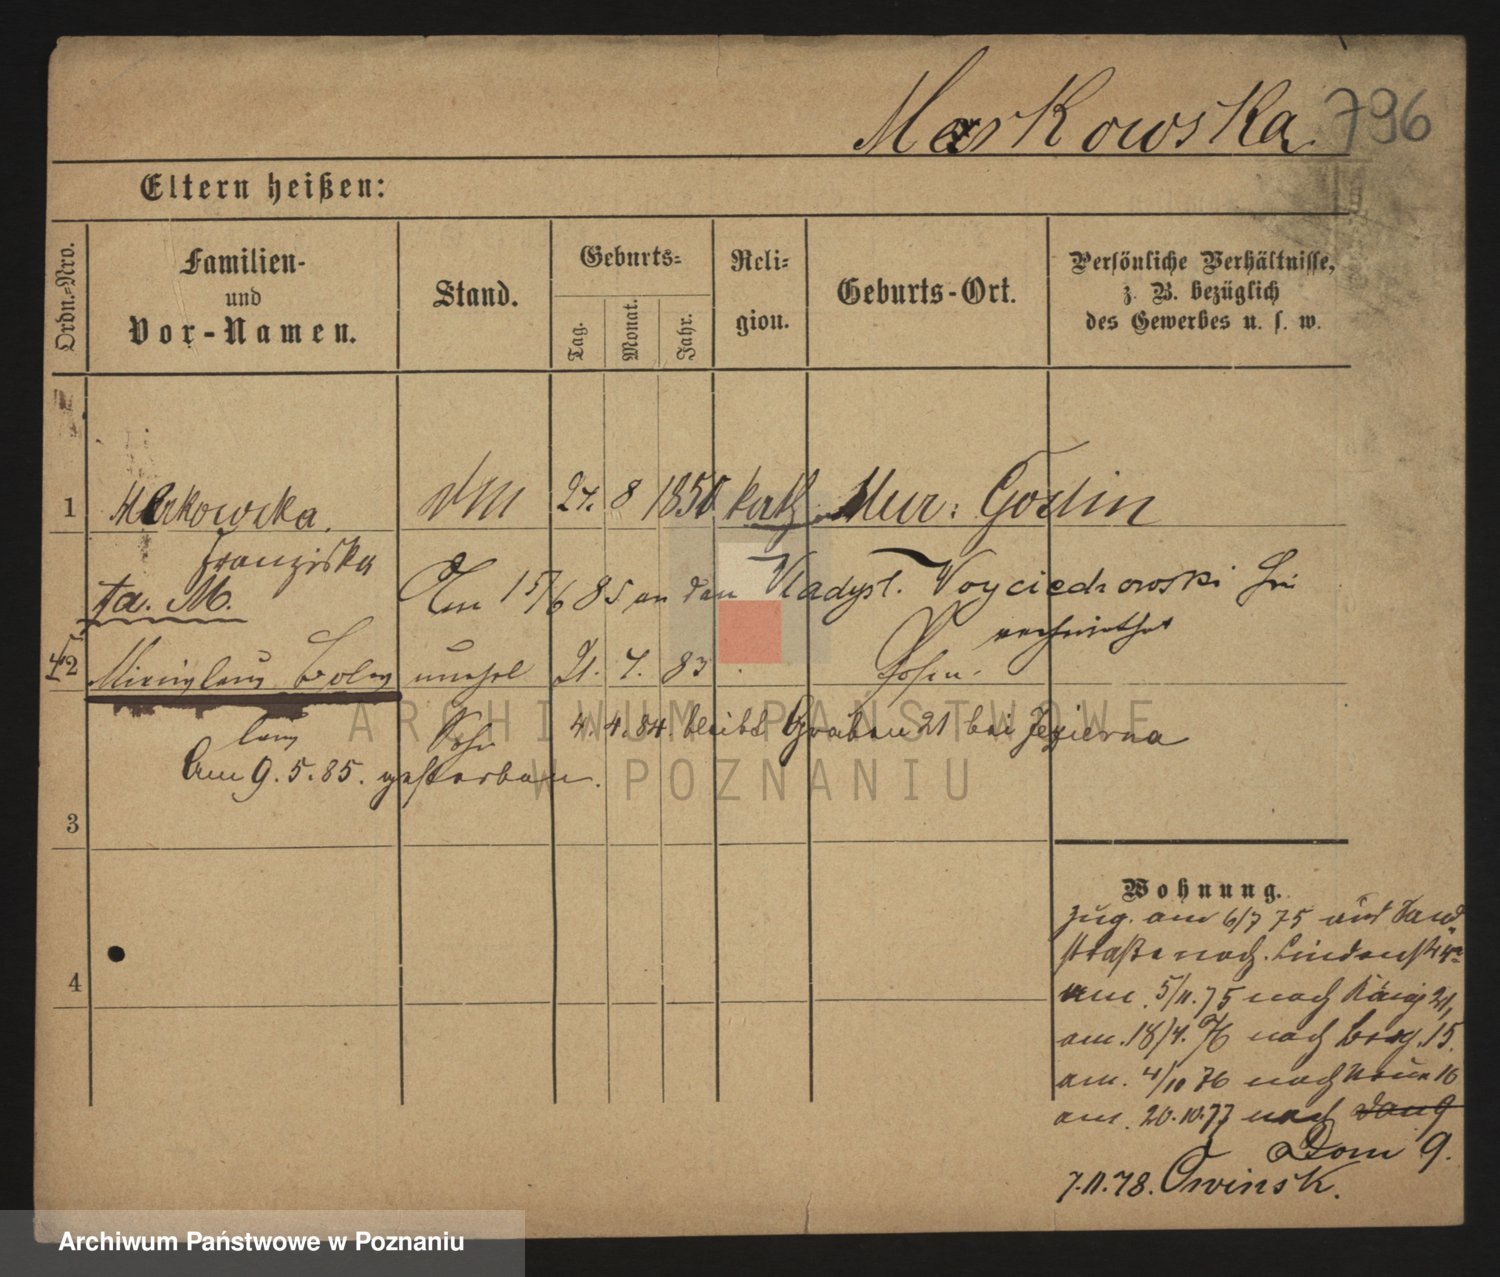 Markowska 796
Eltern heißen:
Ordn.-Nro.
Familien-
und
Vor-Namen.
Stand.
Geburts-
Tag.
Monat.
Jahr.
Reli-
gion.
Geburts-Ort.
Persönliche Verhältnisse,
z. B. bezüglich
des Gewerbes u. s. w.
1 Markowska. 24. 8 1850 kath Mur: Goslin
Franziska
Am 15/6 85 an den Wladysl. Woyciechowski
verheirathet
2 21. 7. 83 Posen.
Sohn 4. 4. 84. bleibt Graben 21 bei Jezierna
Am 9. 5. 85. gestorben.
3
4
Wohnung.
zug. am 6/7 75
straße nach Lindenstr
am 5/11. 75 nach König 21,
am. 18/4. 76 nach Berg. 15.
am. 4/10 76 nach Neue 16
am. 20.10.77 nach
Dom 9.
7.11.78. Owinsk.
ARCHIWUM PAŃSTWOWE
W POZNANIU
Archiwum Państwowe w Poznaniu